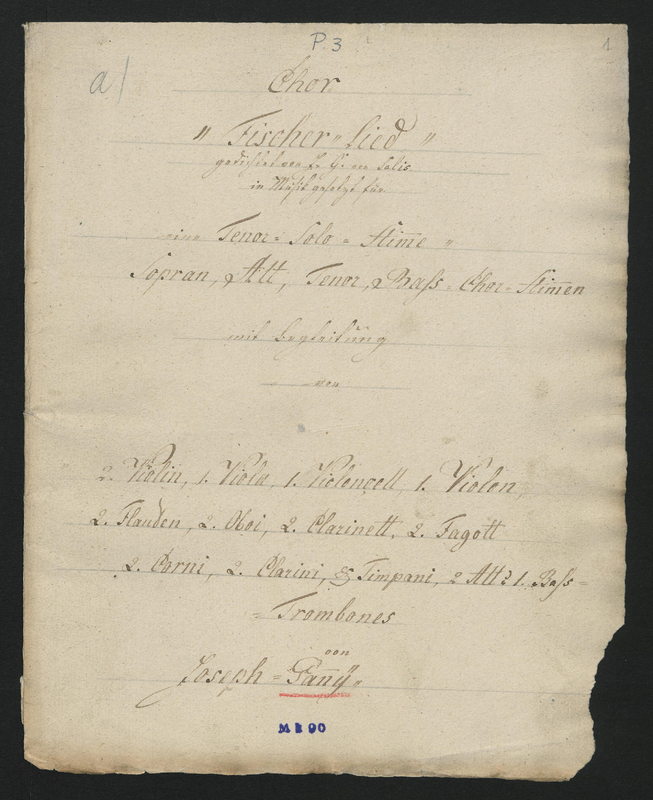 P. 3
1
a/
Chor
" Fischer = Lied "
gedichtet von
in Musik gesetzt für
eine Tenor = Solo = Stim̄e "
Sopran, Alt, Tenor, Bass = Chor = Stim̄en
mit Begleitung
von
2. Violin, 1. Viola, 1. Violoncell, 1. Violon,
2. Flauden, 2. Oboi, 2. Clarinett, 2. Fagott
2. Corni, 2. Clarini, & Timpani, 2 Alt & 1. Bass =
= Trombones
von
Joseph = Pan̄ÿ "
M 1 90